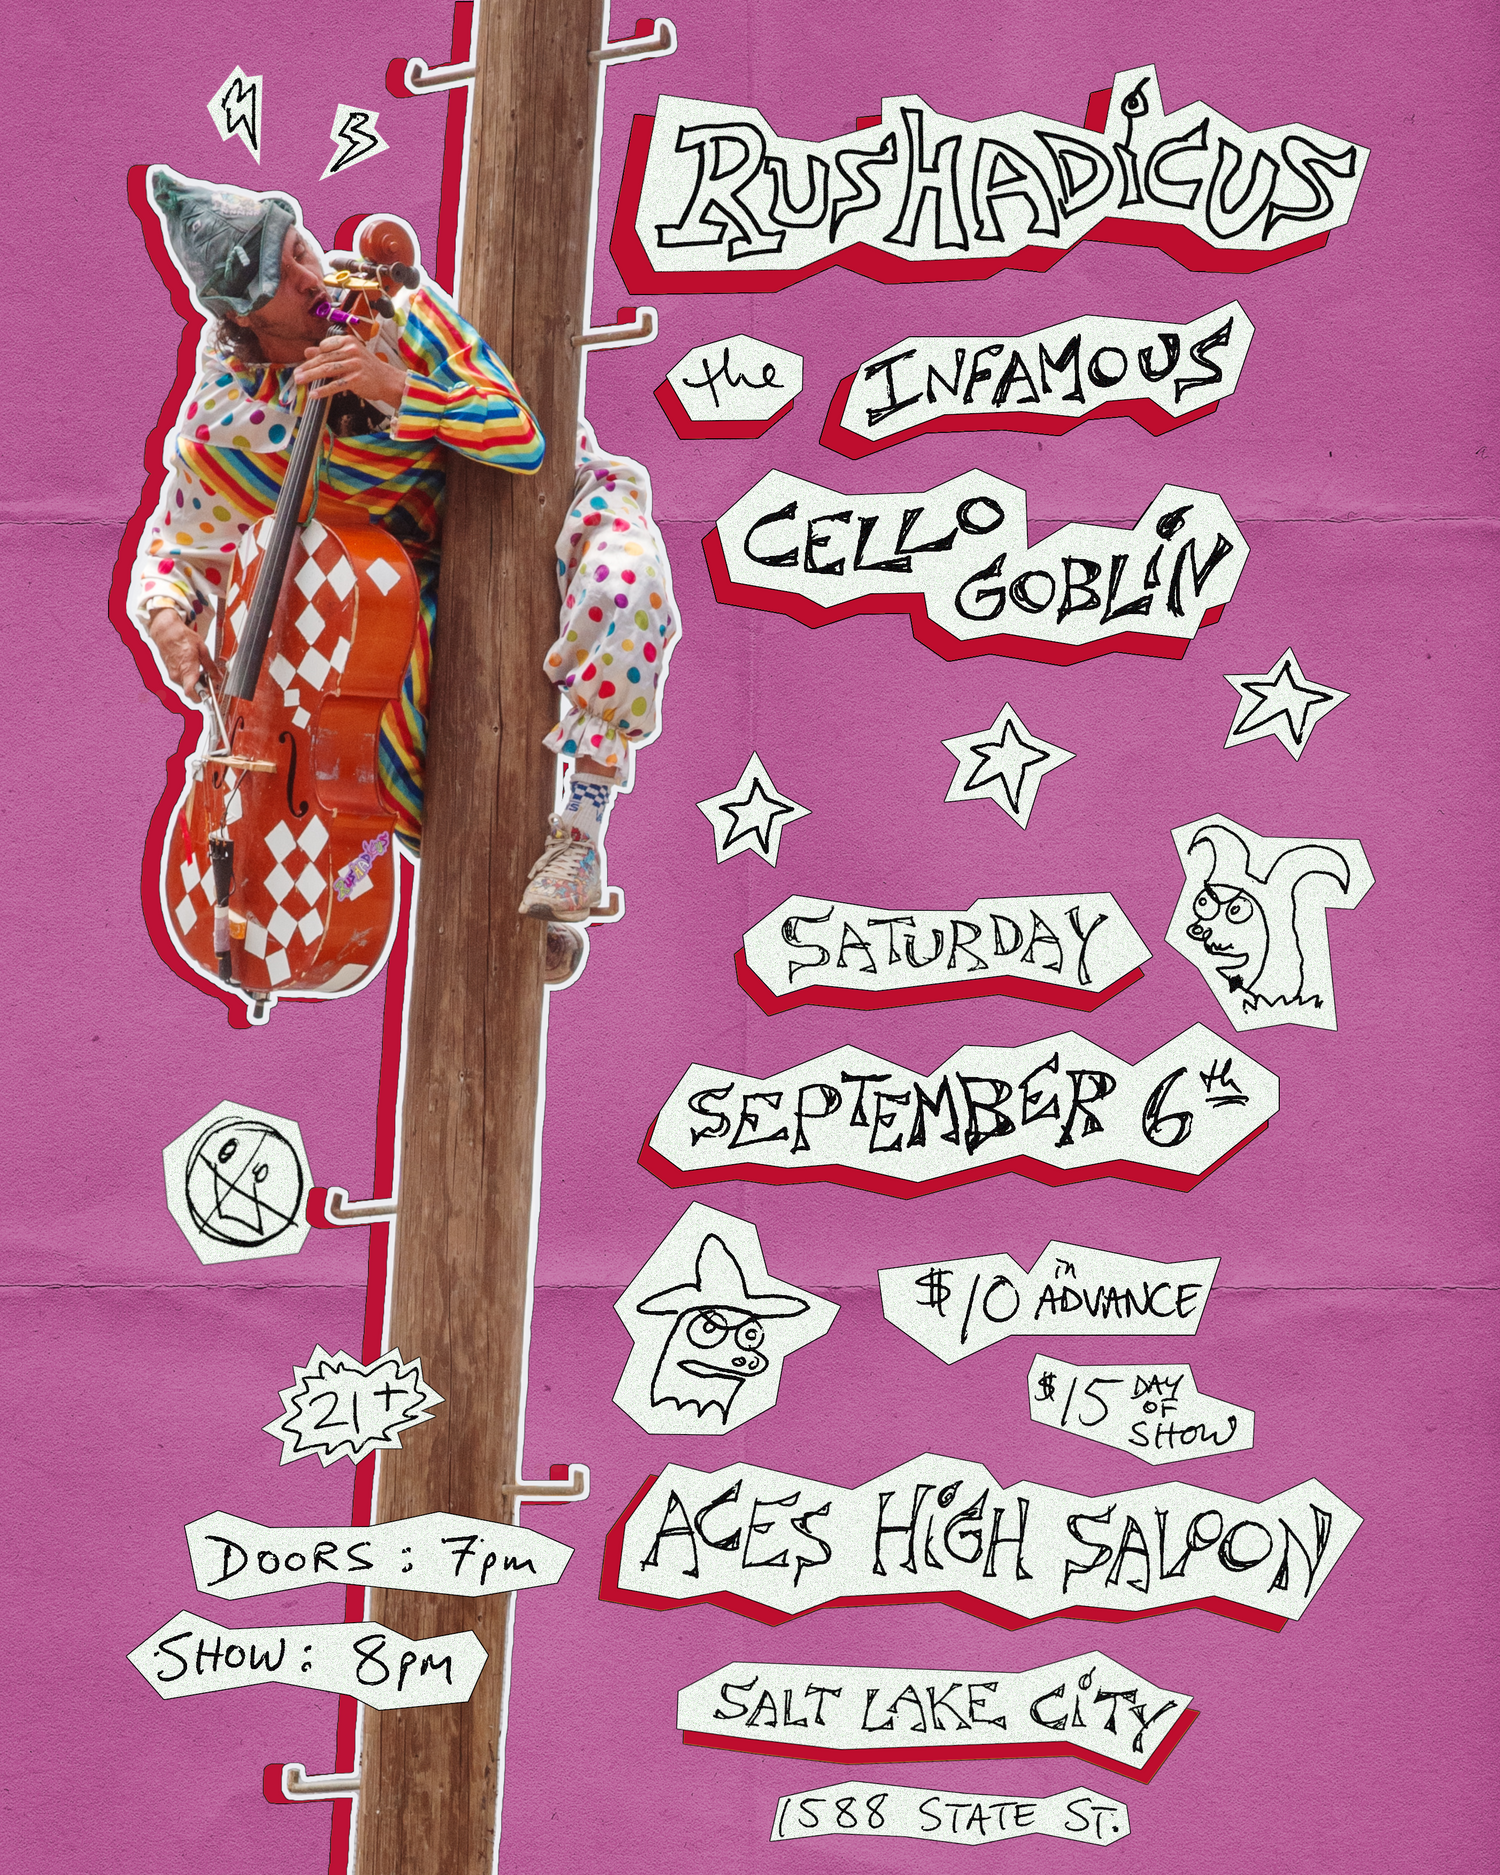 RUSHADiCUS
the INFAMOUS
CELLO
GOBLiN
RUSHADICUS
SATURDAY
SEPTEMBER 6th
$10 in ADVANCE
$15 DAY
OF
SHOW
21+
DOORS : 7pm
SHOW : 8pm
ACES HiGH SALOON
SALT LAKE CiTY
1588 STATE ST.